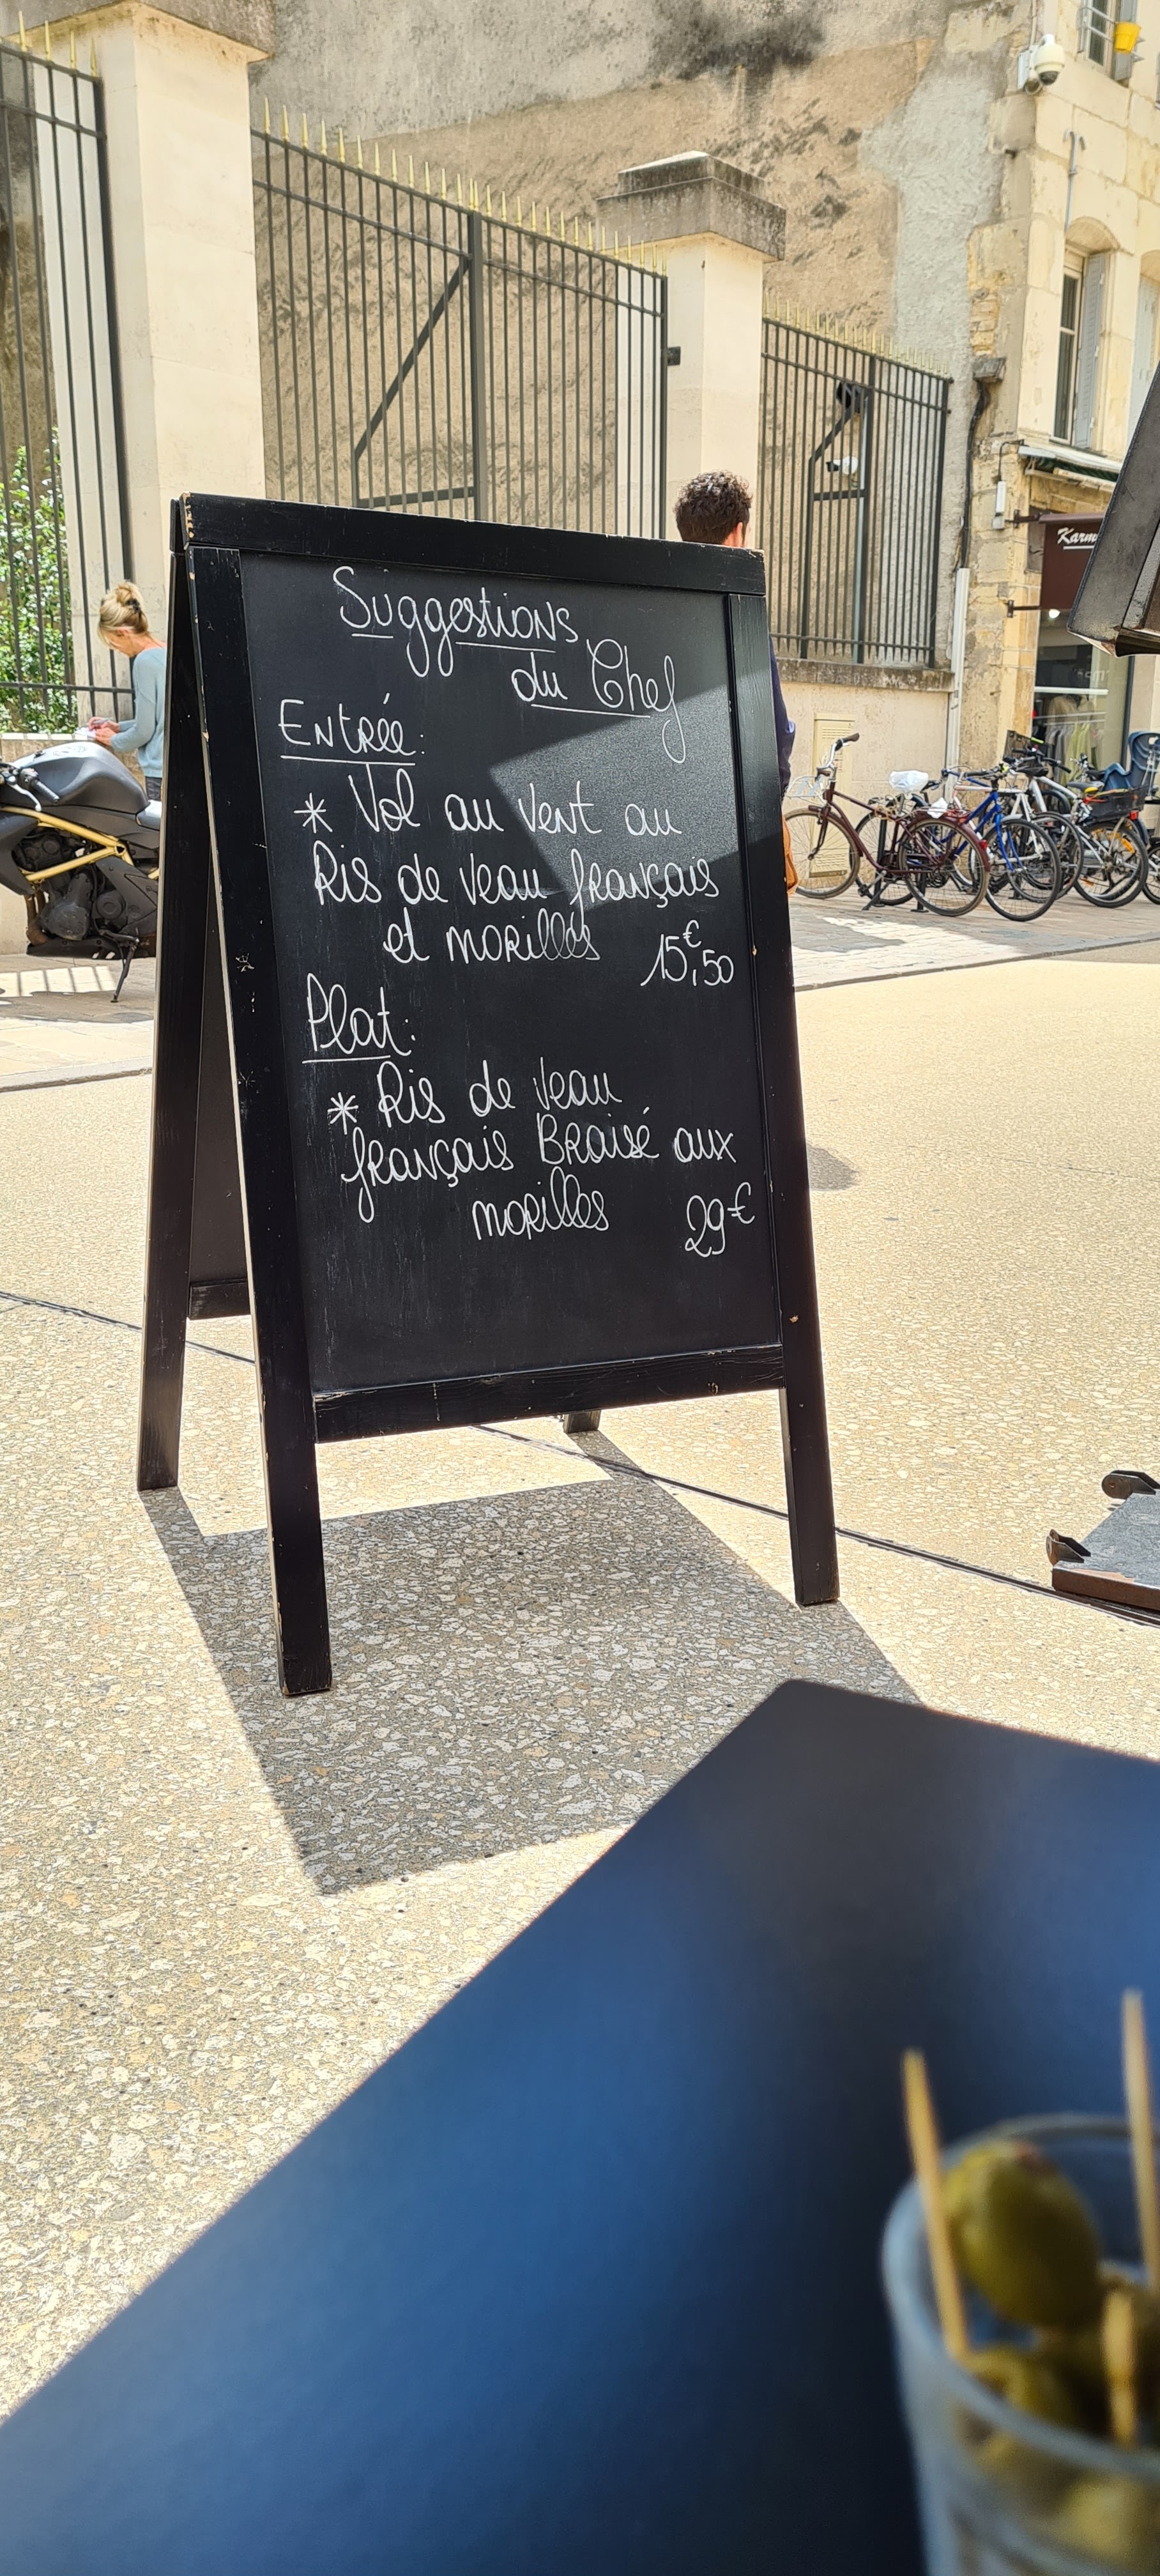 Suggestions
du Chef
Entrée:
* Vol au vent au
Ris de veau français
et morilles 15€,50
Plat:
* Ris de veau
français Braisé aux
morilles 29€